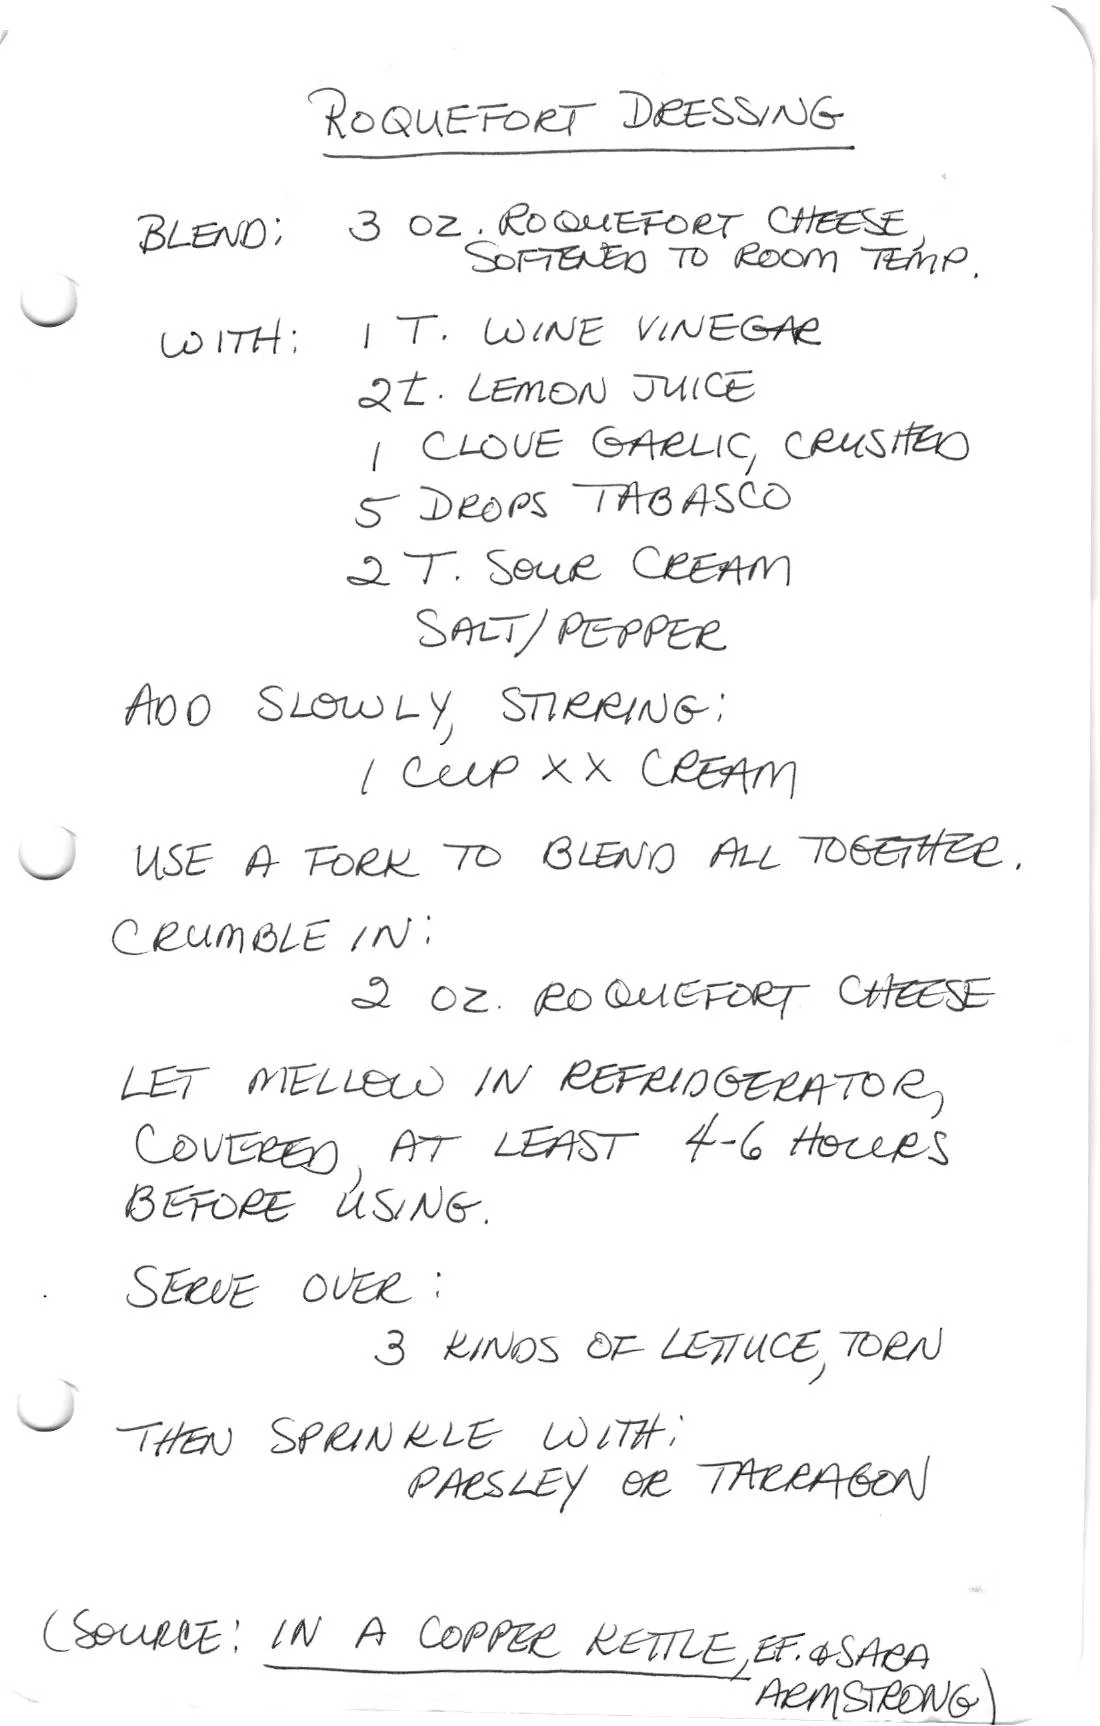 ROQUEFORT DRESSING
BLEND: 3 OZ. ROQUEFORT CHEESE,
SOFTENED TO ROOM TEMP.
WITH: 1 T. WINE VINEGAR
2 t. LEMON JUICE
1 CLOVE GARLIC, CRUSHED
5 DROPS TABASCO
2 T. SOUR CREAM
SALT/PEPPER
ADD SLOWLY, STIRRING:
1 CUP XX CREAM
USE A FORK TO BLEND ALL TOGETHER.
CRUMBLE IN:
2 OZ. ROQUEFORT CHEESE
LET MELLOW IN REFRIDGERATOR,
COVERED, AT LEAST 4-6 HOURS
BEFORE USING.
SERVE OVER:
3 KINDS OF LETTUCE, TORN
THEN SPRINKLE WITH:
PARSLEY OR TARRAGON
(SOURCE: IN A COPPER KETTLE, EF. & SARA
ARMSTRONG)